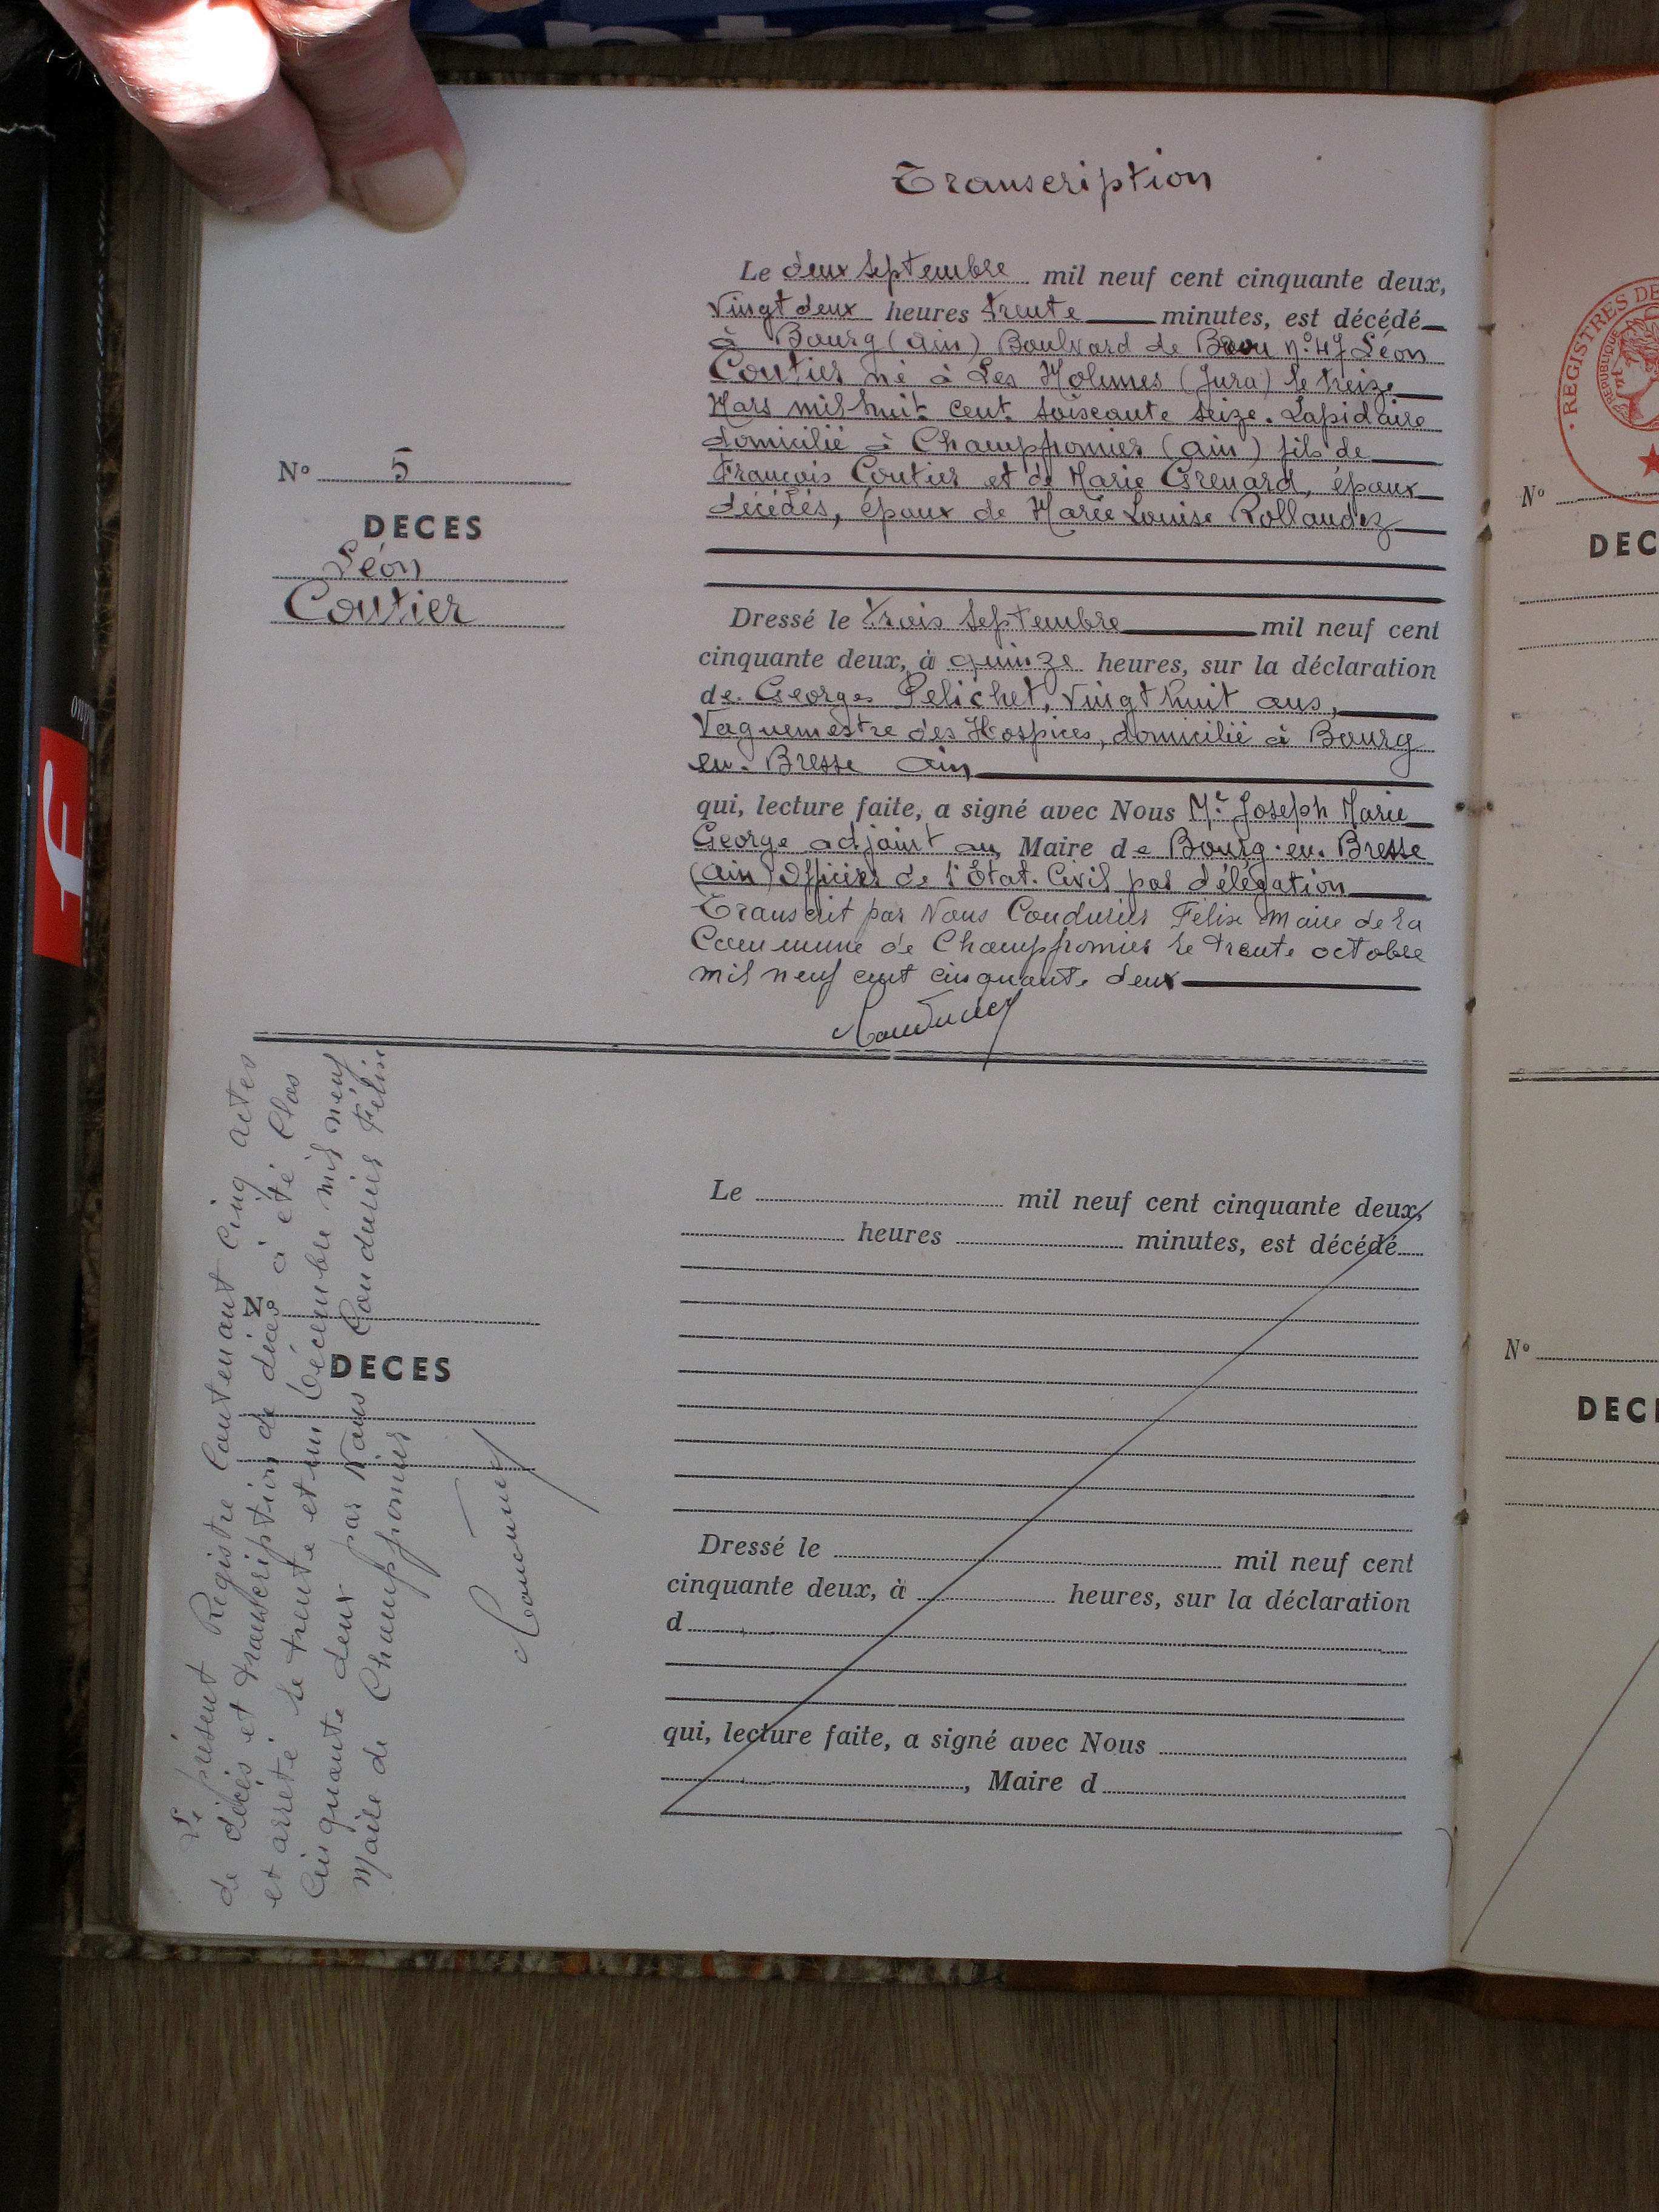 Transcription
Le deux Septembre mil neuf cent cinquante deux,
Vingt deux heures trente minutes, est décédé
à Bourg (Ain) Boulevard de Brou n° 47 Léon
Coutier né à Les Molunes (Jura) le treize
Mars mil huit cent soixante seize. Lapidaire
domicilié à Champfromier (Ain) fils de
François Coutier et de Marie Grenard, époux
décédés, époux de Marie Louise Rollandez
N° 5
DECES
Léon
Coutier
Dressé le trois Septembre mil neuf cent
cinquante deux, à quinze heures, sur la déclaration
de Georges Pelichet, Vingt huit ans,
Vaguemestre des Hospices, domicilié à Bourg
en-Bresse Ain
qui, lecture faite, a signé avec Nous Mr Joseph Marie
George adjoint au Maire de Bourg-en-Bresse
(Ain) Officier de l'Etat-Civil par délégation
Transcrit par Nous Condurier Félix Maire de la
Commune de Champfromier le trente octobre
mil neuf cent cinquante deux
Condurier
Le présent Registre Contenant cinq actes
de décès et transcription de décès à été Clos
et arreté le trente et un Décembre mil neuf
Cinquante deux par Nous Conduriér Félix
Maire de Champfromier
Condurier
N°
DECES
Le mil neuf cent cinquante deux,
heures minutes, est décédé
Dressé le mil neuf cent
cinquante deux, à heures, sur la déclaration
d
qui, lecture faite, a signé avec Nous
, Maire d
REGISTRES DE
REPUBLIQUE
N°
DEC
N°
DEC